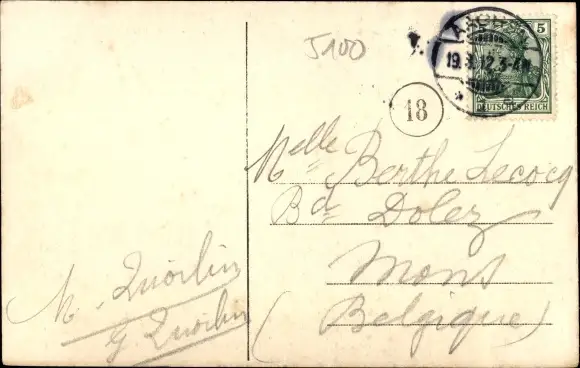 J100
5
19. 12. 3-4
DEUTSCHES REICH
18
Melle Berthe Lecocq
Bd Dolez
Mons
(Belgique)
M. Quorlin
G Quorlin